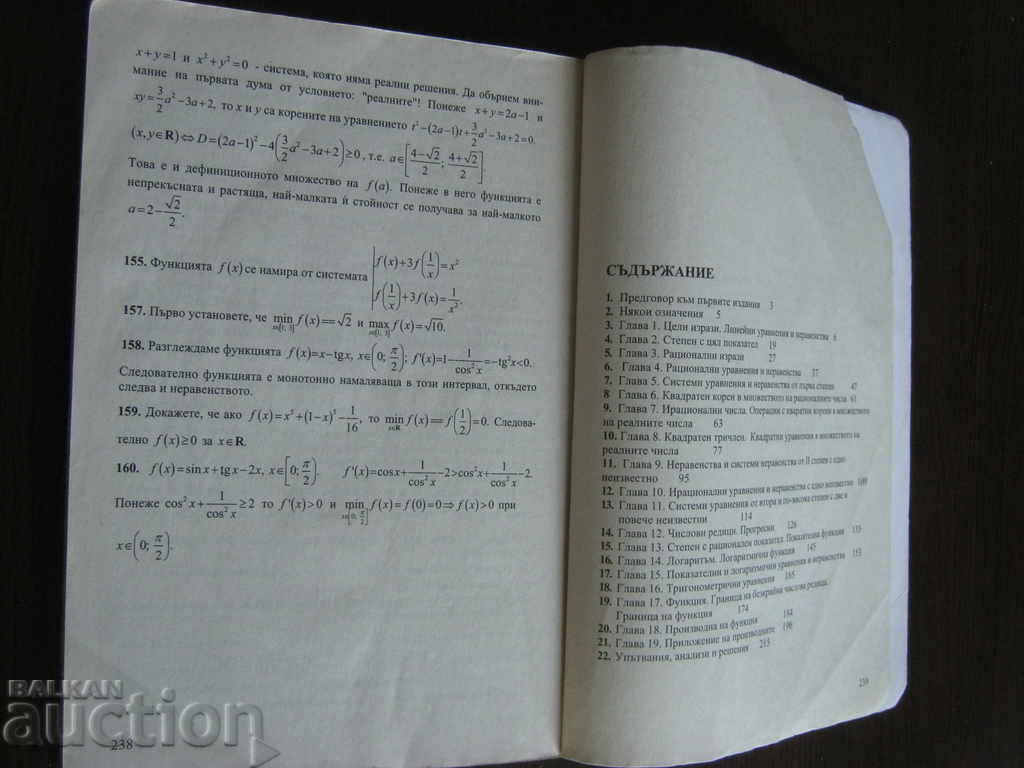 x+y=1 и x²+y²=0 - система, която няма реални решения. Да обърнем вни-
мание на първата дума от условието: "реалните"! Понеже x+y=2a−1 и
xy=3/2a²−3a+2, то x и y са корените на уравнението t²−(2a−1)t+3/2a²−3a+2=0.
(x,y∈R)⇔D=(2a−1)²−4(3/2a²−3a+2)≥0, т.е. a∈[4−√2/2; 4+√2/2].
Това е и дефиниционното множество на f(a). Понеже в него функцията е
непрекъсната и растяща, най-малката ѝ стойност се получава за най-малкото
a=2−√2/2.
155. Функцията f(x) се намира от системата |f(x)+3f(1/x)=x²
|f(1/x)+3f(x)=1/x².
157. Първо установете, че min f(x)=−√2 и max f(x)=√10.
x∈[1; 3] x∈[1; 3]
158. Разглеждаме функцията f(x)=x−tgx, x∈(0; π/2); f'(x)=1−1/cos²x=−tg²x<0.
Следователно функцията е монотонно намаляваща в този интервал, откъдето
следва и неравенството.
159. Докажете, че ако f(x)=x⁵+(1−x)⁵−1/16, то min f(x)=f(1/2)=0. Следова-
x∈R
телно f(x)≥0 за x∈R.
160. f(x)=sinx+tgx−2x, x∈[0; π/2). f'(x)=cosx+1/cos²x−2>cos²x+1/cos²x−2.
Понеже cos²x+1/cos²x≥2 то f'(x)>0 и min f(x)=f(0)=0⇒f(x)>0 при
x∈[0; π/2]
x∈(0; π/2).
238
СЪДЪРЖАНИЕ
1. Предговор към първите издания 3
2. Някои означения 5
3. Глава 1. Цели изрази. Линейни уравнения и неравенства 6
4. Глава 2. Степен с цял показател 19
5. Глава 3. Рационални изрази 27
6. Глава 4. Рационални уравнения и неравенства 37
7. Глава 5. Системи уравнения и неравенства от първа степен 47
8 Глава 6. Квадратен корен в множеството на рационалните числа. 61
9. Глава 7. Ирационални числа. Операции с квадратни корени в множеството
на реалните числа 63
10. Глава 8. Квадратен тричлен. Квадратни уравнения в множеството на
реалните числа 77
11. Глава 9. Неравенства и системи неравенства от II степен с едно
неизвестно 95
12. Глава 10. Ирационални уравнения и неравенства с едно неизвестно
13. Глава 11. Системи уравнения от втора и по-висока степен с две и
повече неизвестни 114
14. Глава 12. Числови редици. Прогресии 126
15. Глава 13. Степен с рационален показател. Показателна функция 135
16. Глава 14. Логаритъм. Логаритмична функция 145
17. Глава 15. Показателни и логаритмични уравнения и неравенства 153
18. Глава 16. Тригонометрични уравнения 165
19. Глава 17. Функция. Граница на безкрайна числова редица.
Граница на функция 174
20. Глава 18. Производна на функция 184
21. Глава 19. Приложение на производните 196
22. Упътвания, анализи и решения 215
239
BALKAN
auction